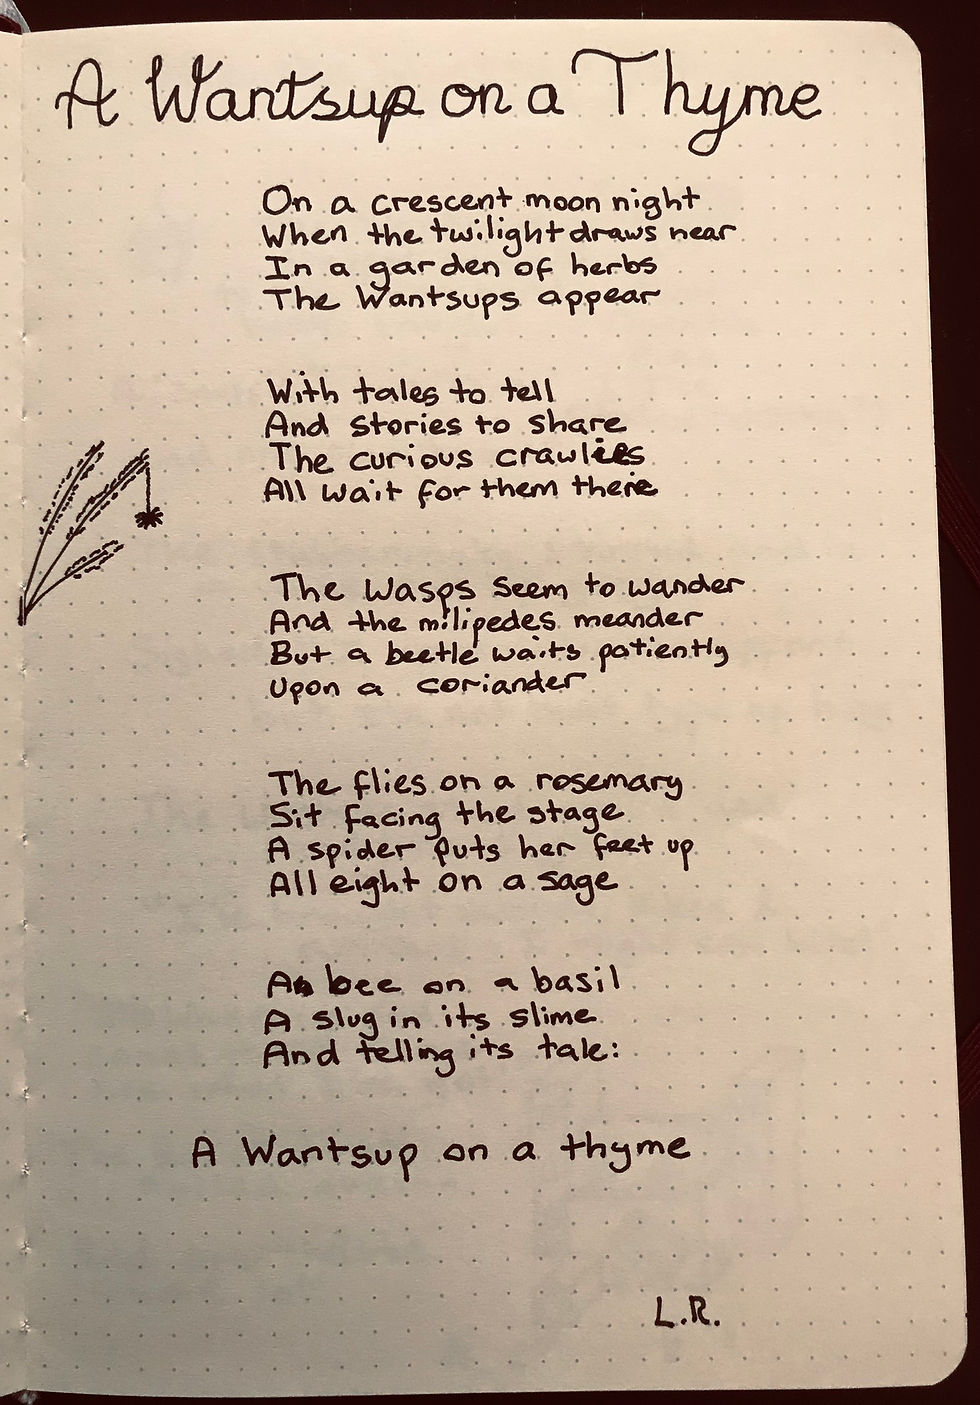 A Wantsup on a Thyme
On a crescent moon night
When the twilight draws near
In a garden of herbs
The Wantsups appear
With tales to tell
And stories to share
The curious crawlies
All wait for them there
The wasps seem to wander
And the milipedes meander
But a beetle waits patiently
Upon a coriander
The flies on a rosemary
Sit facing the stage
A spider puts her feet up
All eight on a sage
A bee on a basil
A slug in its slime
And telling its tale:
A Wantsup on a thyme
L.R.